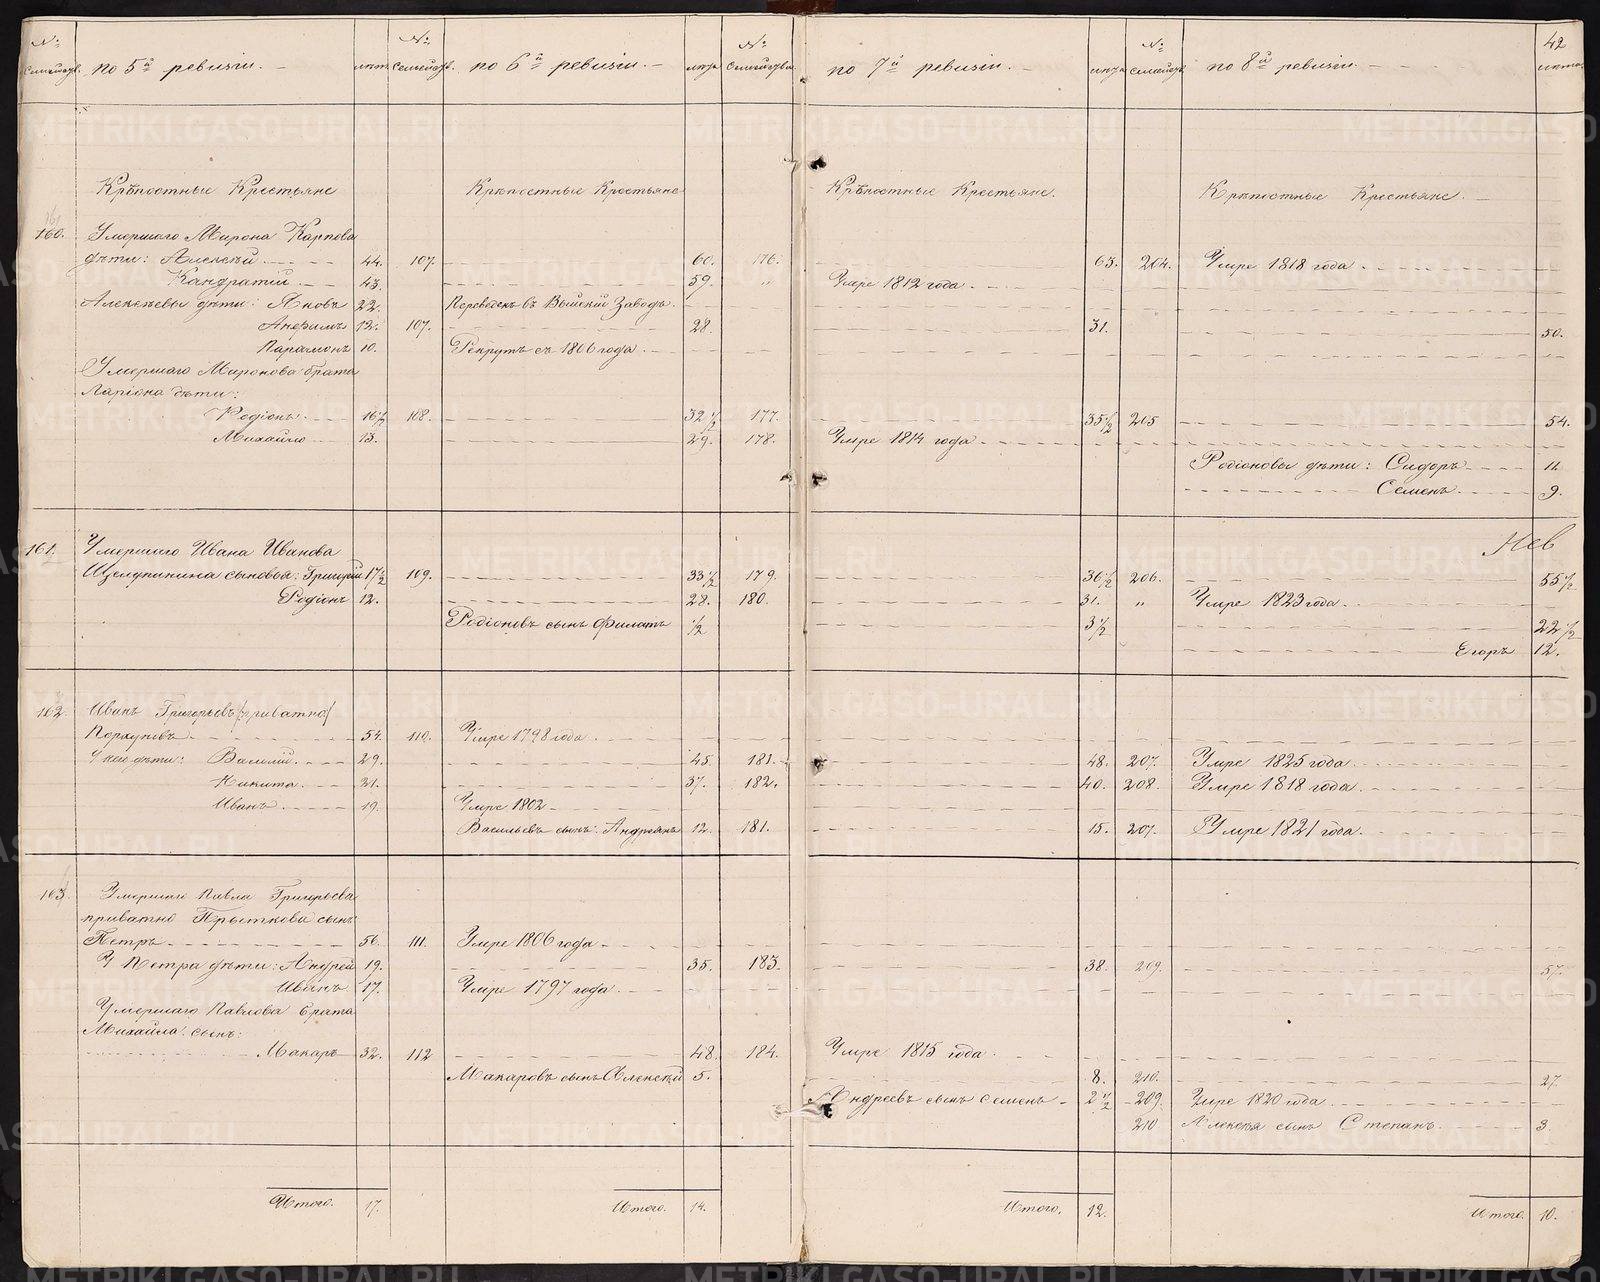 № семейств. по 5й ревизiи. — лѣта № семейств. по 6й ревизiи. — лѣта № семейства. по 7й ревизiи. — лѣта № семейств. по 8й ревизiи. 42 лѣта
Крѣпостные Крестьяне Крѣпостные Крестьяне Крѣпостные Крестьяне. Крѣпостные Крестьяне.
160. Умершаго Мирона Карпова
дѣти: Алексѣй 44. 107. 60. 176. 63. 204. Умре 1818 года
Кандратiй 43. 59. „ Умре 1812 года
Алексѣевы дѣти: Яковъ 22. Переведенъ въ Выйскiй Заводъ.
Анфимъ 12. 107. 28. 31. 50.
Парамонъ 10. Рекрутъ съ 1806 года.
Умершаго Миронова брата
Ларiона дѣти:
Родiонъ 16 1/2 108. 32 1/2 177. 35 1/2 205 54.
Михайло 13. 29. 178. Умре 1814 года
Родiоновы дѣти: Сидоръ 11.
Семенъ 9.
161. Умершаго Ивана Иванова Нев
Щелупинина сыновья: Григорiй 17 1/2 109. 33 1/2 179. 36 1/2 206. 55 1/2
Родiонъ 12. 28. 180. 31. „ Умре 1823 года.
Родiоновъ сынъ Филатъ 1/2 3 1/2 22 1/2
Егоръ 12.
162. Иванъ Григорьевъ /приватно/
54. 110. Умре 1798 года
У него дѣти: Василiй 29. 45. 181. 48. 207. Умре 1825 года
Никита 21. 37. 182. 40. 208. Умре 1818 года.
Иванъ 19. Умре 1802
Васильевъ сынъ: Андреянъ 12. 181. 15. 207. Умре 1821 года.
163. Умершаго Павла Григорьева
приватно Прыткова сынъ
Петръ 56. 111. Умре 1806 года
У Петра дѣти: Андрей 19. 35. 183. 38. 209. 57.
Иванъ 17. Умре 1797 года.
Умершаго Павлова брата
Михайла сынъ:
Макаръ 32. 112 48. 184. Умре 1815 года.
Макаровъ сынъ Алексѣй 5. 8. 210. 27.
Андреевъ сынъ Семенъ 2 1/2 209. Умре 1820 года.
210 Алексѣя сынъ Степанъ. 3.
Итого. 17. Итого. 14. Итого. 12. Итого. 10.
METRIKI.GASO-URAL.RU